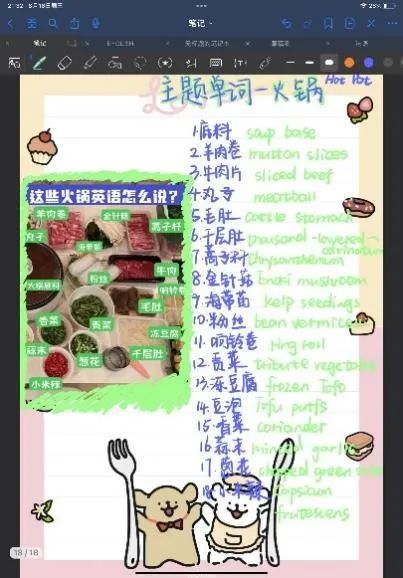 21:32 8月18日周三
28%
笔记
笔记
主题单词一火锅
Hot Pot
1.底料 soup base
2.羊肉卷 mutton slices
3.牛肉片 sliced beef
4.丸子 meatball
5.毛肚 cattle stomach
6.千层肚 thousand-layered
7.茼蒿 Chrysanthemum
8.金针菇 Enoki mushroom
9.海带苗 kelp seedings
10.粉丝 bean vermicelli
11.响铃卷 ring roll
12.贡菜 tribute vegetable
13.冻豆腐 frozen Tofo
14.豆泡 Tofu puffs
15.香菜 coriander
16.蒜末 minced garlic
17.葱花 chopped green
18.小米辣 capsicum
frutescens
这些火锅英语怎么说?
羊肉卷
金针菇
茼蒿
丸子
海带苗
牛肉
火锅底料
粉丝
响铃卷
毛肚
香菜
贡菜
冻豆腐
蒜末
葱花
千层肚
小米辣
18/18